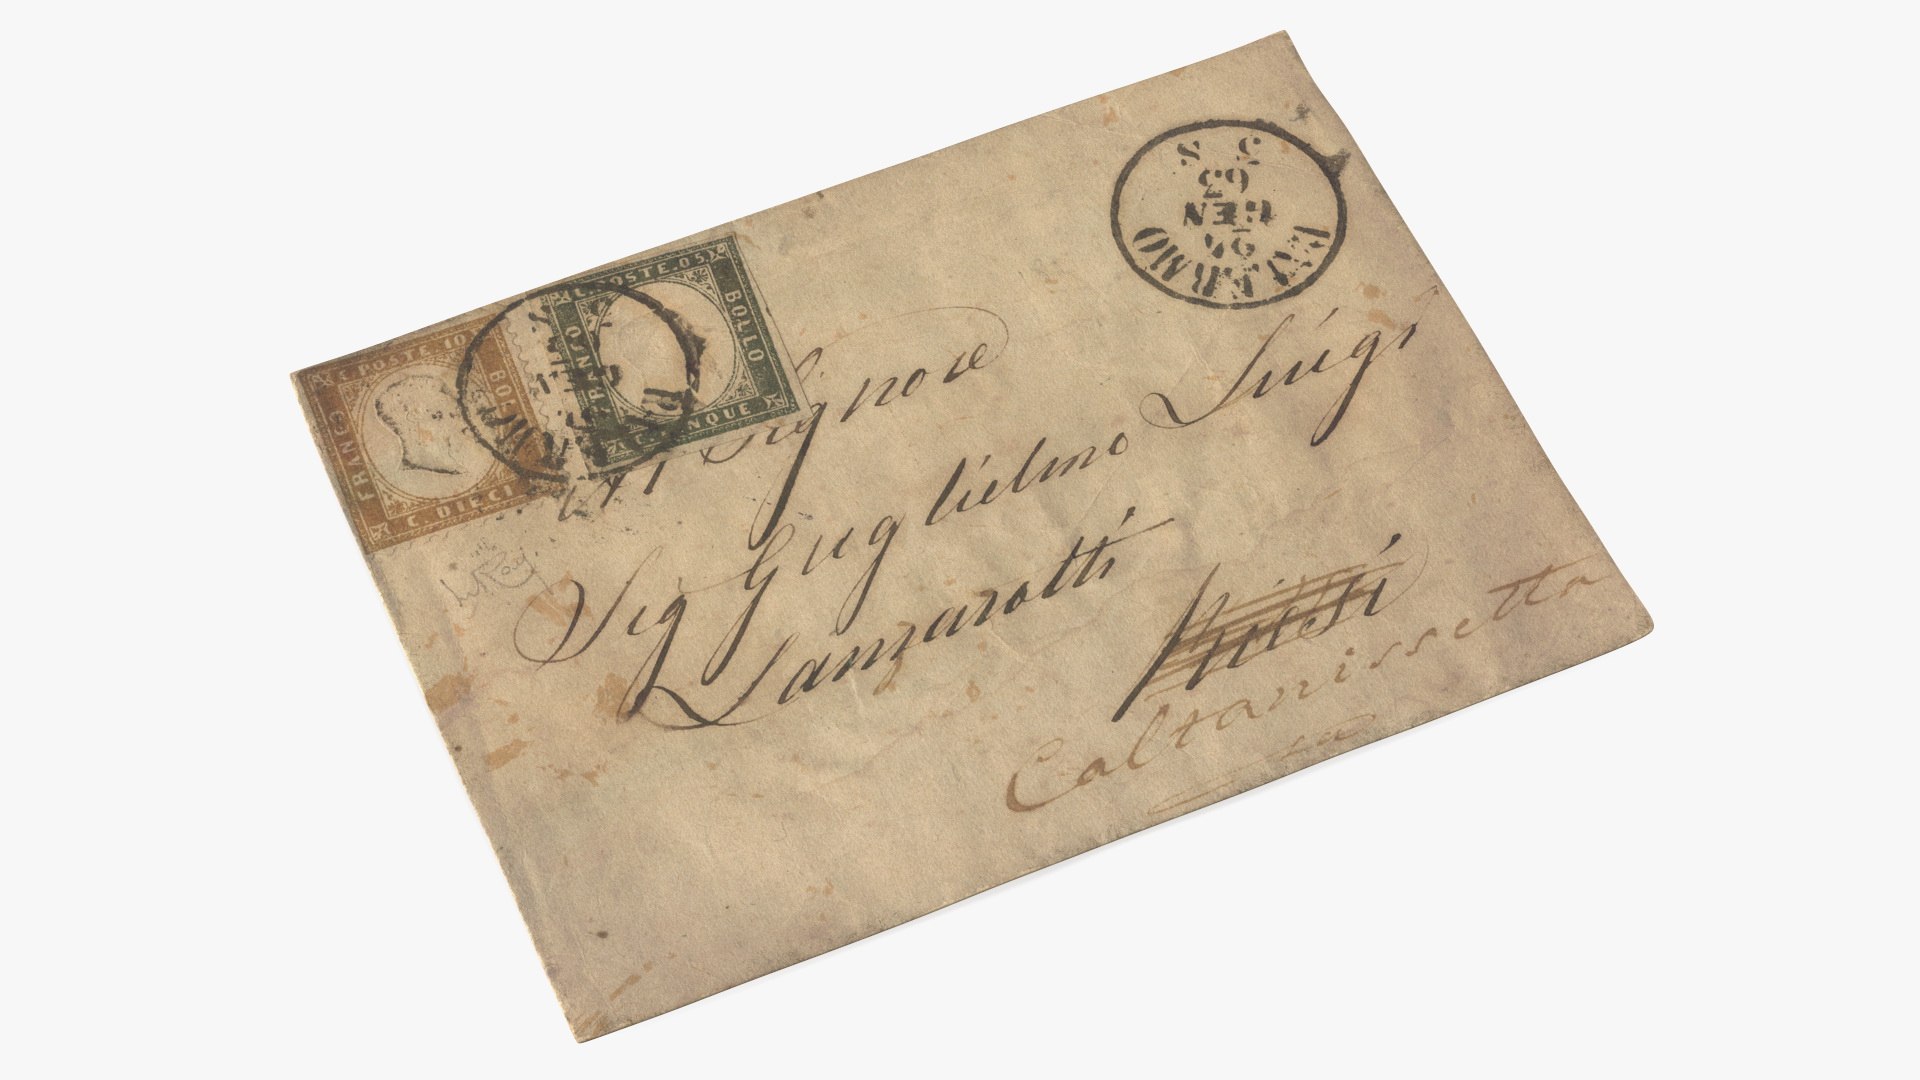 C. POSTE. 10
FRANCO
BOLLO
C. DIECI
C. POSTE. 05
FRANCO
BOLLO
C. CINQUE
PALERMO
GEN
63
3 S
Signore
Sig Guglielmo Luigi
Lanzarotti
Riesi
Caltanissetta